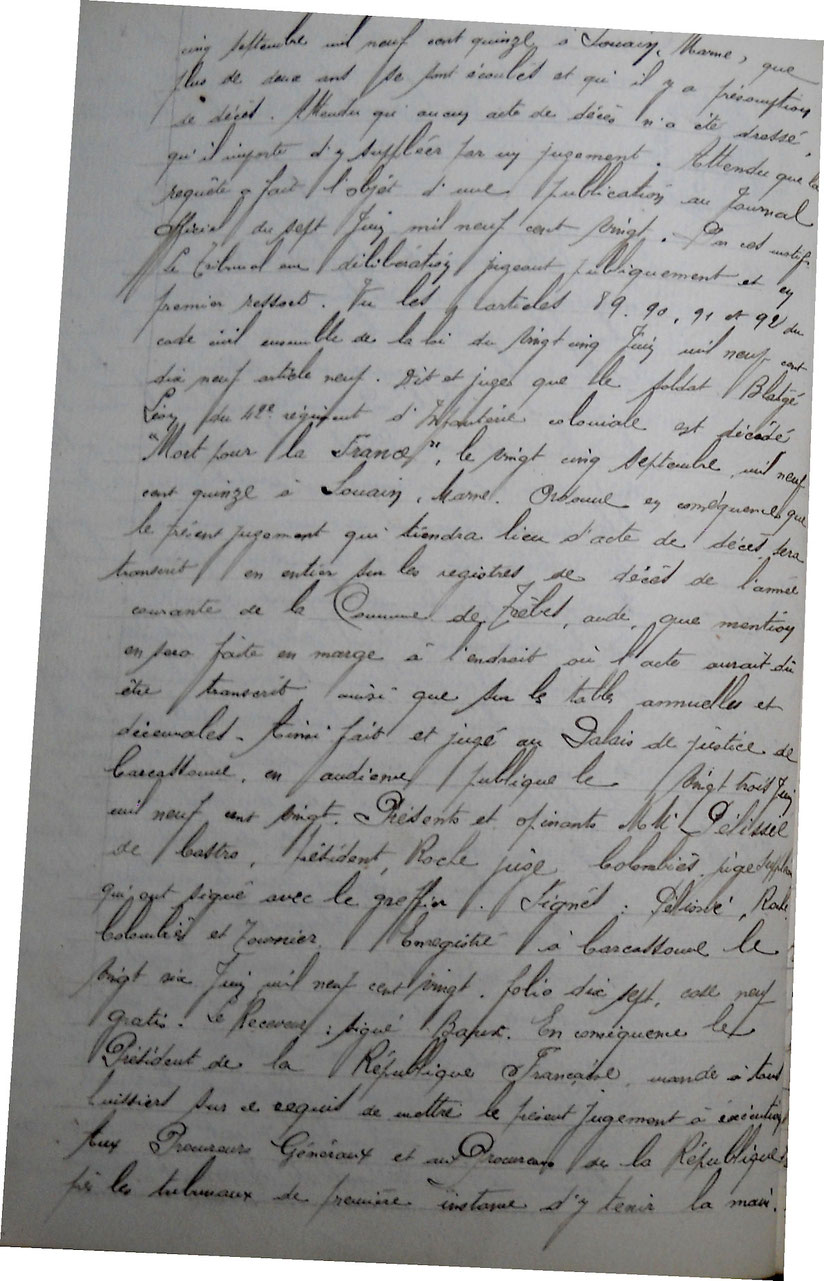 cinq septembre mil neuf cent quinze à Souain, Marne, que
plus de deux ans se sont écoulés et qu'il y a présomption
de décès. Attendu qu'aucun acte de décès n'a été dressé,
qu'il importe d'y suppléer par un jugement. Attendu que la
requête a fait l'objet d'une publication au Journal
Officiel du sept Juin mil neuf cent vingt. P'r ces motifs
Le Tribunal en délibération jugeant publiquement et en
premier ressort. Vu les articles 89. 90, 91 et 92 du
code civil ensemble de la loi du vingt cinq Juin mil neuf cent
dix neuf article neuf. Dit et juge que le soldat Blatgé
Léon du 42e régiment d'Infanterie coloniale est décédé
"Mort pour la France", le vingt cinq septembre mil neuf
cent quinze à Souain, Marne. Ordonne en conséquence que
le présent jugement qui tiendra lieu d'acte de décès, sera
transcrit en entier sur les registres de décès de l'année
courante de la Commune de Trèbes, aude, que mention
en sera faite en marge à l'endroit où l'acte aurait dû
être transcrit, ainsi que sur les tables annuelles et
décennales. Ainsi fait et jugé au Palais de justice de
Carcassonne, en audience publique le vingt trois Juin
mil neuf cent vingt. Présents et opinants M.M. Pélissié
de Castro, Président, Roche juge Colombiès juge suppléant
qui ont signé avec le greffier. Signés : Pélissié, Roche
Colombiès et Tournier. Enregistré à Carcassonne le
vingt six Juin mil neuf cent vingt. folio dix sept, case neuf
gratis. Le Receveur : signé Baux. En conséquence le
Président de la République Française, mande à tous
huissiers sur ce requis de mettre le présent Jugement à exécution
Aux Procureurs Généraux et aux Procureurs de la République
près les tribunaux de première instance d'y tenir la main.